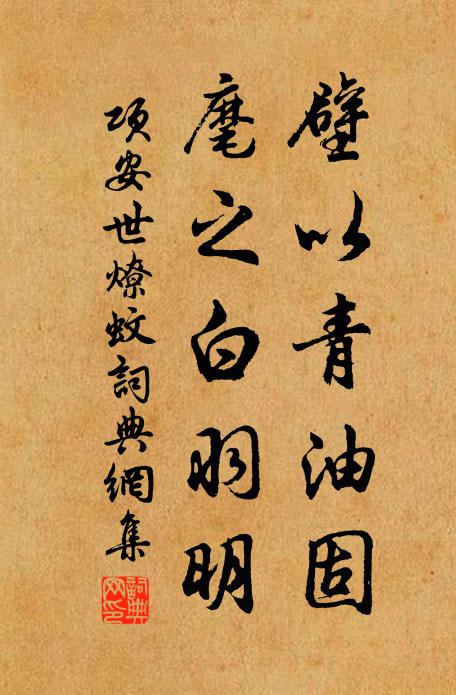 壁以青油固
麾之白羽明
項安世燎蚊詞典網集
詞典網印